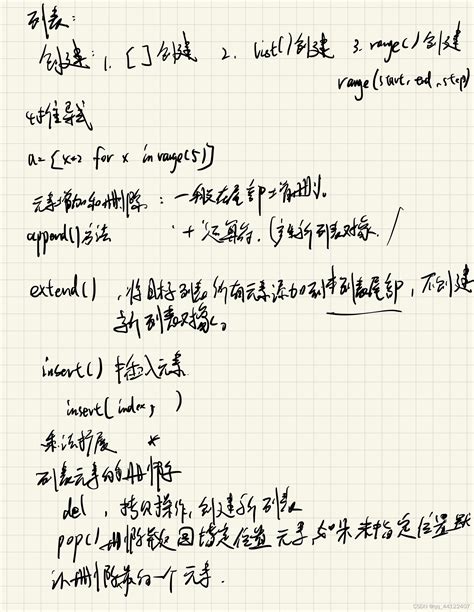 列表:
创建: 1. [ ] 创建 2. list() 创建 3. range() 创建
range(start, end, step)
4 推导式
a=[x*2 for x in range(5)]
元素增加和删除: 一般在尾部上增删。
append()方法 + 运算符.(生成新列表对象.
extend() , 将目标列表所有元素添加到本列表尾部, 不创建
新列表对象。
insert() 插入元素
insert(index, )
乘法扩展 *
列表元素的删除
del , 拷贝操作, 创建新列表
pop() 删除并返回指定位置元素, 如果未指定位置默
认删除最后一个元素.
CSDN @qq_44122407